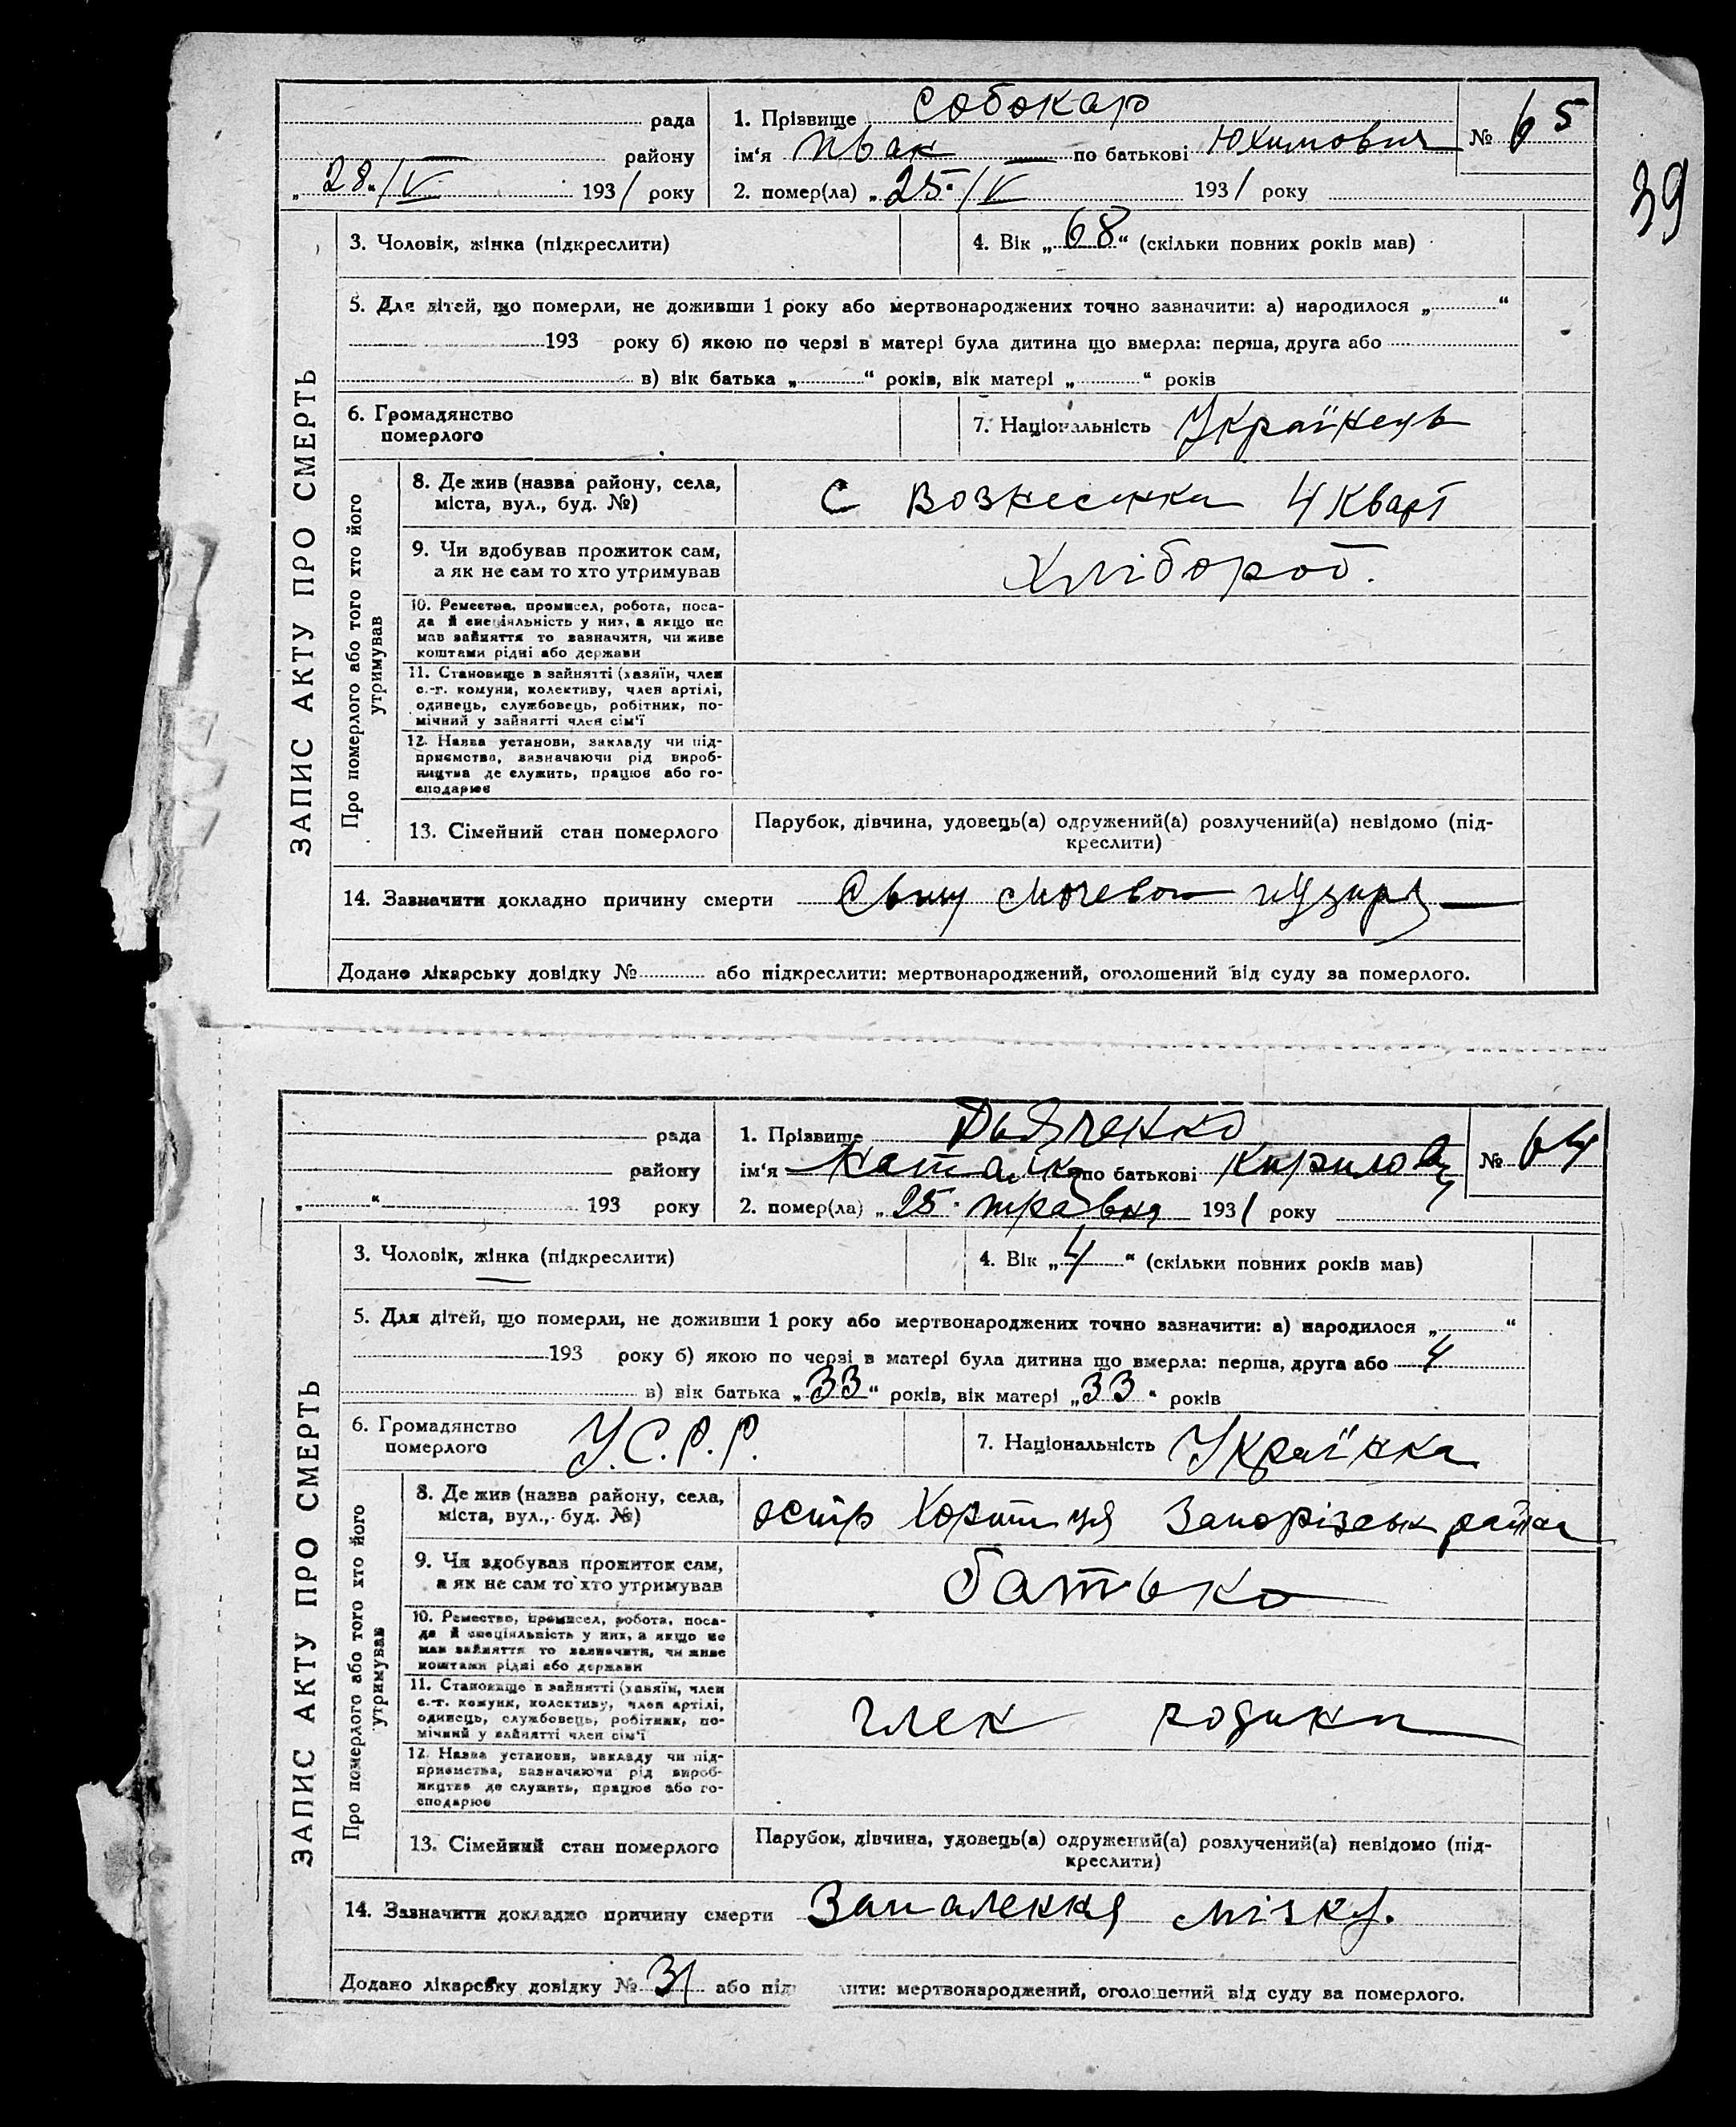 39
рада
району
„ 28./V 1931 року
1. Прізвище Собокар
ім‘я Иван по батькові Юхимович
№ 65
2. помер(ла) „ 25./V 1931 року
ЗАПИС АКТУ ПРО СМЕРТЬ
3. Чоловік, жінка (підкреслити)
4. Вік „ 68 “ (скільки повних років мав)
5. Для дітей, що померли, не доживши 1 року або мертвонароджених точно зазначити: а) народилося „ “
193 року б) якою по черзі в матері була дитина що вмерла: перша, друга або
в) вік батька „ “ років, вік матері „ “ років
6. Громадянство
померлого
7. Національність Українець
Про померлого або того хто його
утримував
8. Де жив (назва району, села,
міста, вул., буд. №)
С Вознесенки 4 Кварт
9. Чи здобував прожиток сам,
а як не сам то хто утримував
Хлібороб.
10. Ремество, промисел, робота, поса-
да й спеціяльність у них, а якщо не
мав зайняття то зазначити, чи живе
коштами рідні або держави
11. Становище в зайнятті (хазяїн, член
с.-г. комуни, колективу, член артілі,
одинець, службовець, робітник, по-
мічний у зайнятті член сім‘ї
12. Назва установи, закладу чи під-
приємства, зазначаючи рід вироб-
ництва де служить, працює або го-
сподарює
13. Сімейний стан померлого
Парубок, дівчина, удовець(а) одружений(а) розлучений(а) невідомо (під-
креслити)
14. Зазначити докладно причину смерти мочевого пузиря
Додано лікарську довідку № або підкреслити: мертвонароджений, оголошений від суду за померлого.
рада
району
„ “ 193 року
1. Прізвище Дьяченко
ім‘я Наталка по батькові Кирилов
№ 64
2. помер(ла) „ 25. травня 1931 року
ЗАПИС АКТУ ПРО СМЕРТЬ
3. Чоловік, жінка (підкреслити)
4. Вік „ 4 “ (скільки повних років мав)
5. Для дітей, що померли, не доживши 1 року або мертвонароджених точно зазначити: а) народилося „ “
193 року б) якою по черзі в матері була дитина що вмерла: перша, друга або 4
в) вік батька „ 33 “ років, вік матері „ 33 “ років
6. Громадянство
померлого
У.С.Р.Р.
7. Національність Українка
Про померлого або того хто його
утримував
8. Де жив (назва району, села,
міста, вул., буд. №)
остр Хортиця Запорізськ району
9. Чи здобував прожиток сам,
а як не сам то хто утримував
батько
10. Ремество, промисел, робота, поса-
да й спеціяльність у них, а якщо не
мав зайняття то зазначити, чи живе
коштами рідні або держави
11. Становище в зайнятті (хазяїн, член
с.-г. комуни, колективу, член артілі,
одинець, службовець, робітник, по-
мічний у зайнятті член сім‘ї
член родини
12. Назва установи, закладу чи під-
приємства, зазначаючи рід вироб-
ництва де служить, працює або го-
сподарює
13. Сімейний стан померлого
Парубок, дівчина, удовець(а) одружений(а) розлучений(а) невідомо (під-
креслити)
14. Зазначити докладно причину смерти Запалення мізку.
Додано лікарську довідку № 31 або під ити: мертвонароджений, оголошений від суду за померлого.